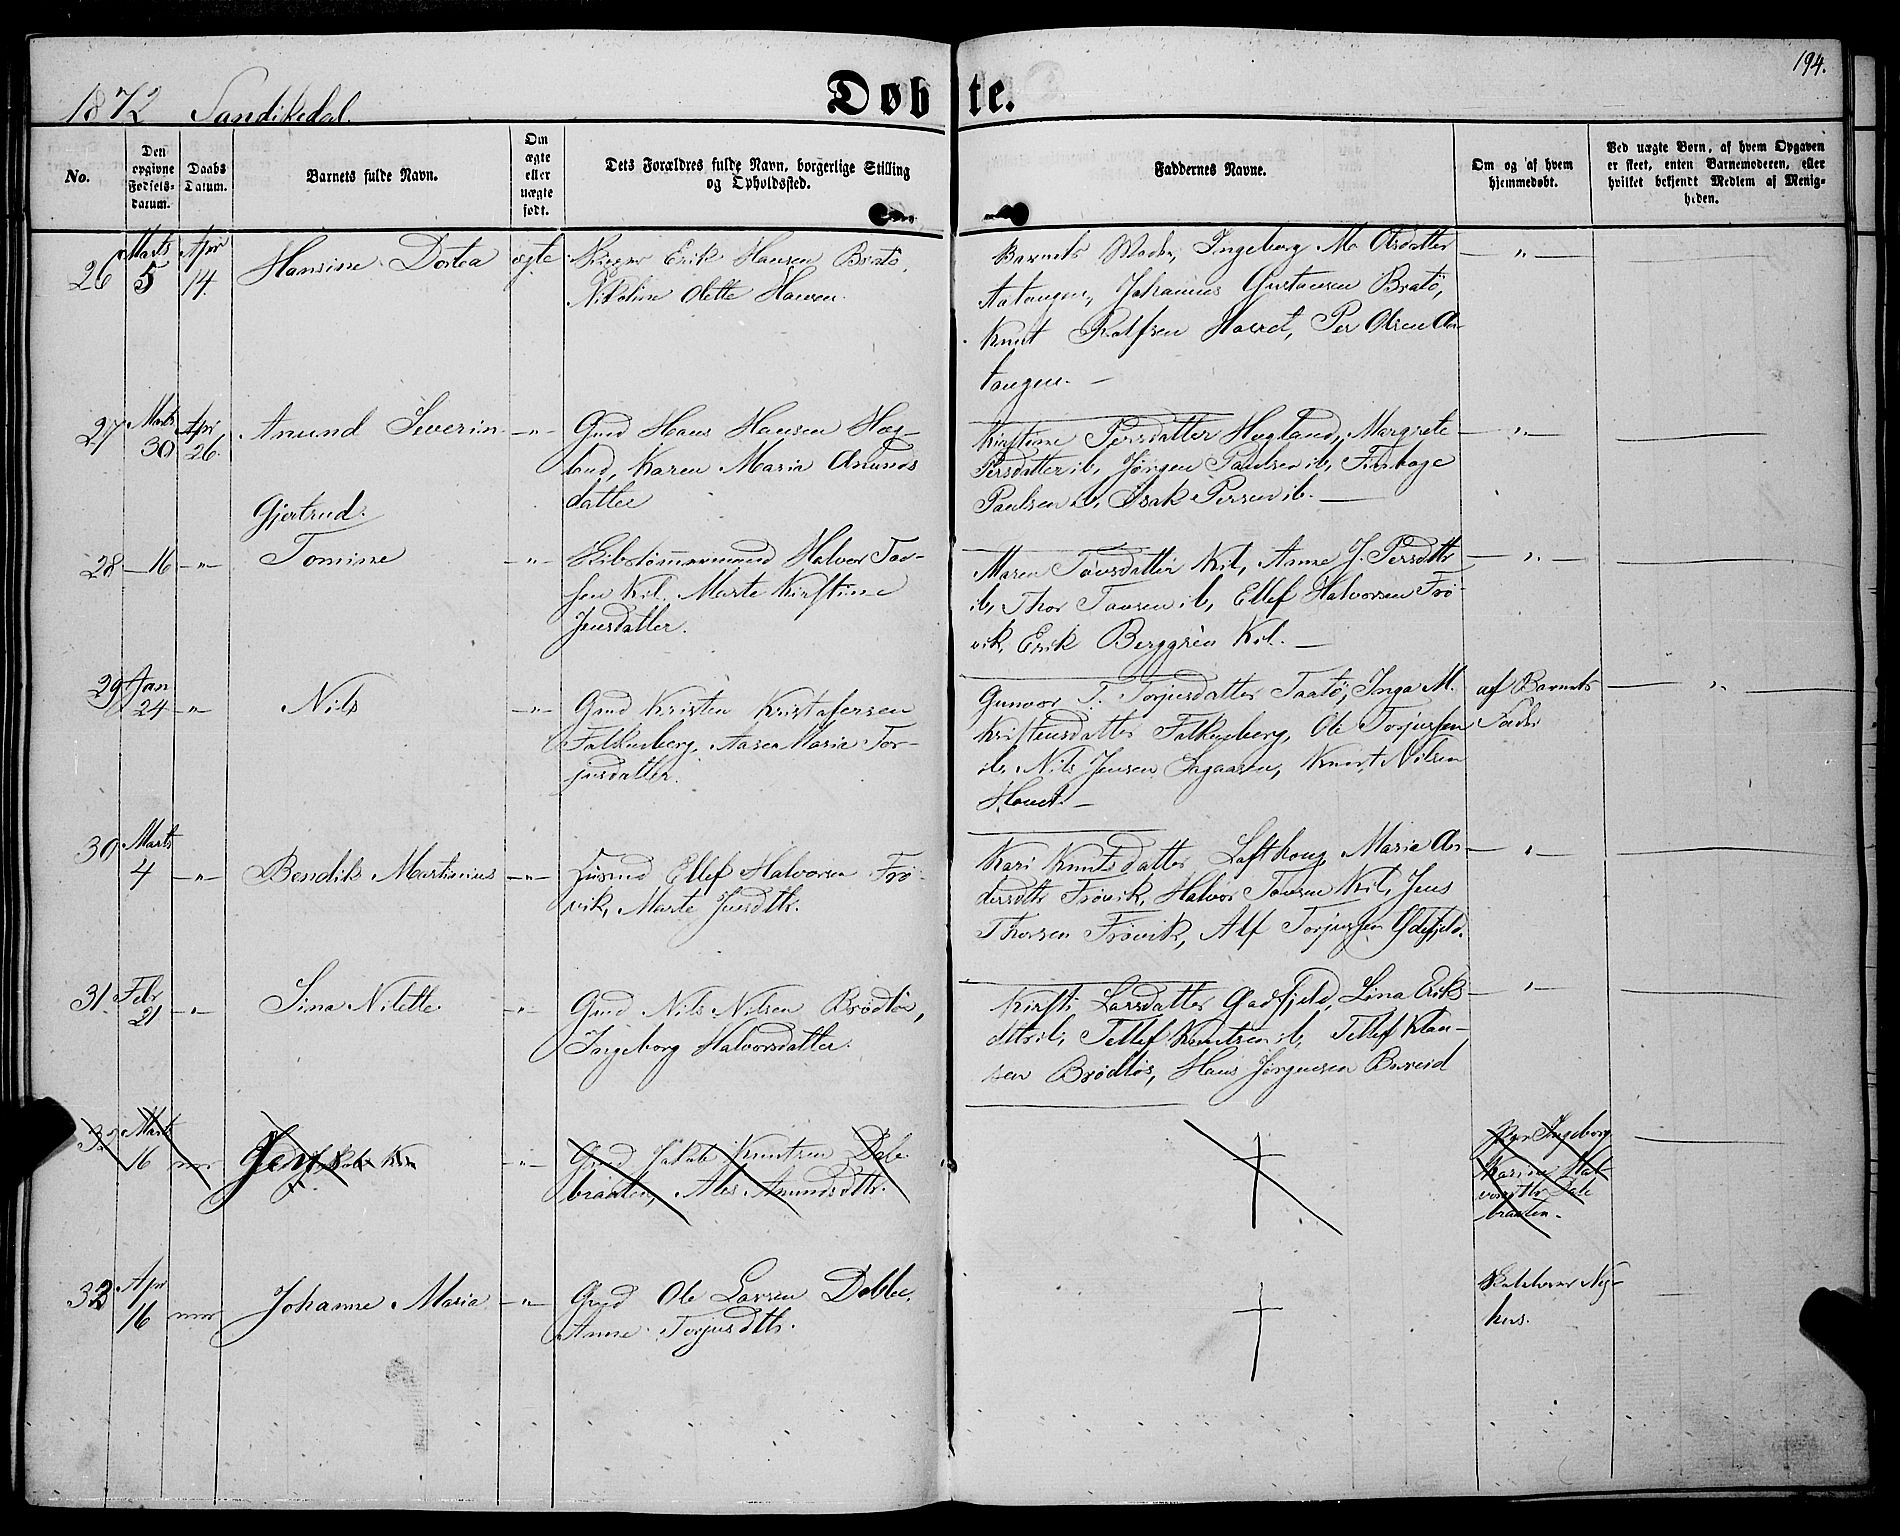 194.
1872 Sandikedal.
Døbte.
No.
Den opgivne Fødsels-datum.
Daabs Datum.
Barnets fulde Navn.
Om ægte eller uægte født.
Dets Forældres fulde Navn, borgerlige Stilling
og Opholdssted.
Faddernes Navne.
Om og af hvem
hjemmedøbt.
Ved uægte Børn, af hvem Opgaven
er skeet, enten Barnemoderen, eller
hvilket bekjendt Medlem af Menig-
heden.
26 Marts 5 Apr 14. Hansine Dortea ægte
Erik Hansen Bratø,
Nikoline Olette Hansen.
Barnets Moder, Ingeborg M. Olsdatter
Aatangen, Johannes Gustavsen Bratø,
Knut Rolfsen Haaet, Per Olsen Aa-
tangen. —
27 Marts 30 Apr 26. Anund Severin —"—
Gmd Hans Hansen Hæg-
land, Karen Maria Anunds
datter
Kirstine Persdatter Hægland, Margrete
Persdatter ib, Jørgen Paulsen ib,
Paulsen ib, Isak Persen ib. —
—"—
Gjertrud.
28 — 16 —"— Tomine —"—
Skibstømmermand Halvor Tov-
sen Kil, Marte Kirstine
Jensdatter.
Maren Tovsdatter Kil, Anne J. Persdtr
ib, Thor Tovsen ib, Ellef Halvorsen Frø-
vik, Erik Berggren Kil. —
—"—
29 Jan 24 —"— Nils —"—
Gmd Kristen Kristofersen
Falkenberg, Aasen Maria Tor-
jusdatter.
Gunvor T. Torjusdatter Taatø, Inga M.
Kristensdatter Falkenberg, Ole Torjussen
ib, Nils Jensen Ingaasen, Knut Nilsen
Haaet. —
af Barnets
Fader
—"—
30 Marts 4 —"— Bendik Martinius —"—
Husmd Ellef Halvorsen Frø-
vik, Marte Jensdtr.
Kari Knutsdatter Lofthoug, Maria An-
dersdtr Frøvik, Halvor Tovsen Kil, Jens
Thorsen Frøvik, Alf Torjussen
—"—
31. Febr 21 —"— Sina Nilette —"—
Gmd Nils Nilsen Brødløs,
Ingeborg Halvorsdatter.
Kirsti Larsdatter Gadfjeld, Lina Eriks
dttr ib, Tellef Knutsen ib, Tellef Klau-
sen Brødløs, Hans Jørgensen Bureid
—"—
32 Marts 16 —"—
Gmd Jakob Knutsen Dale
braaten, Anundsdtr.
Ingeborg
Karine Hal-
vorsdtr Dale
braaten.
33 Apr 16 Johanne Maria —"—
Gmd Ole Larsen Doble,
Anne Torjusdtr.